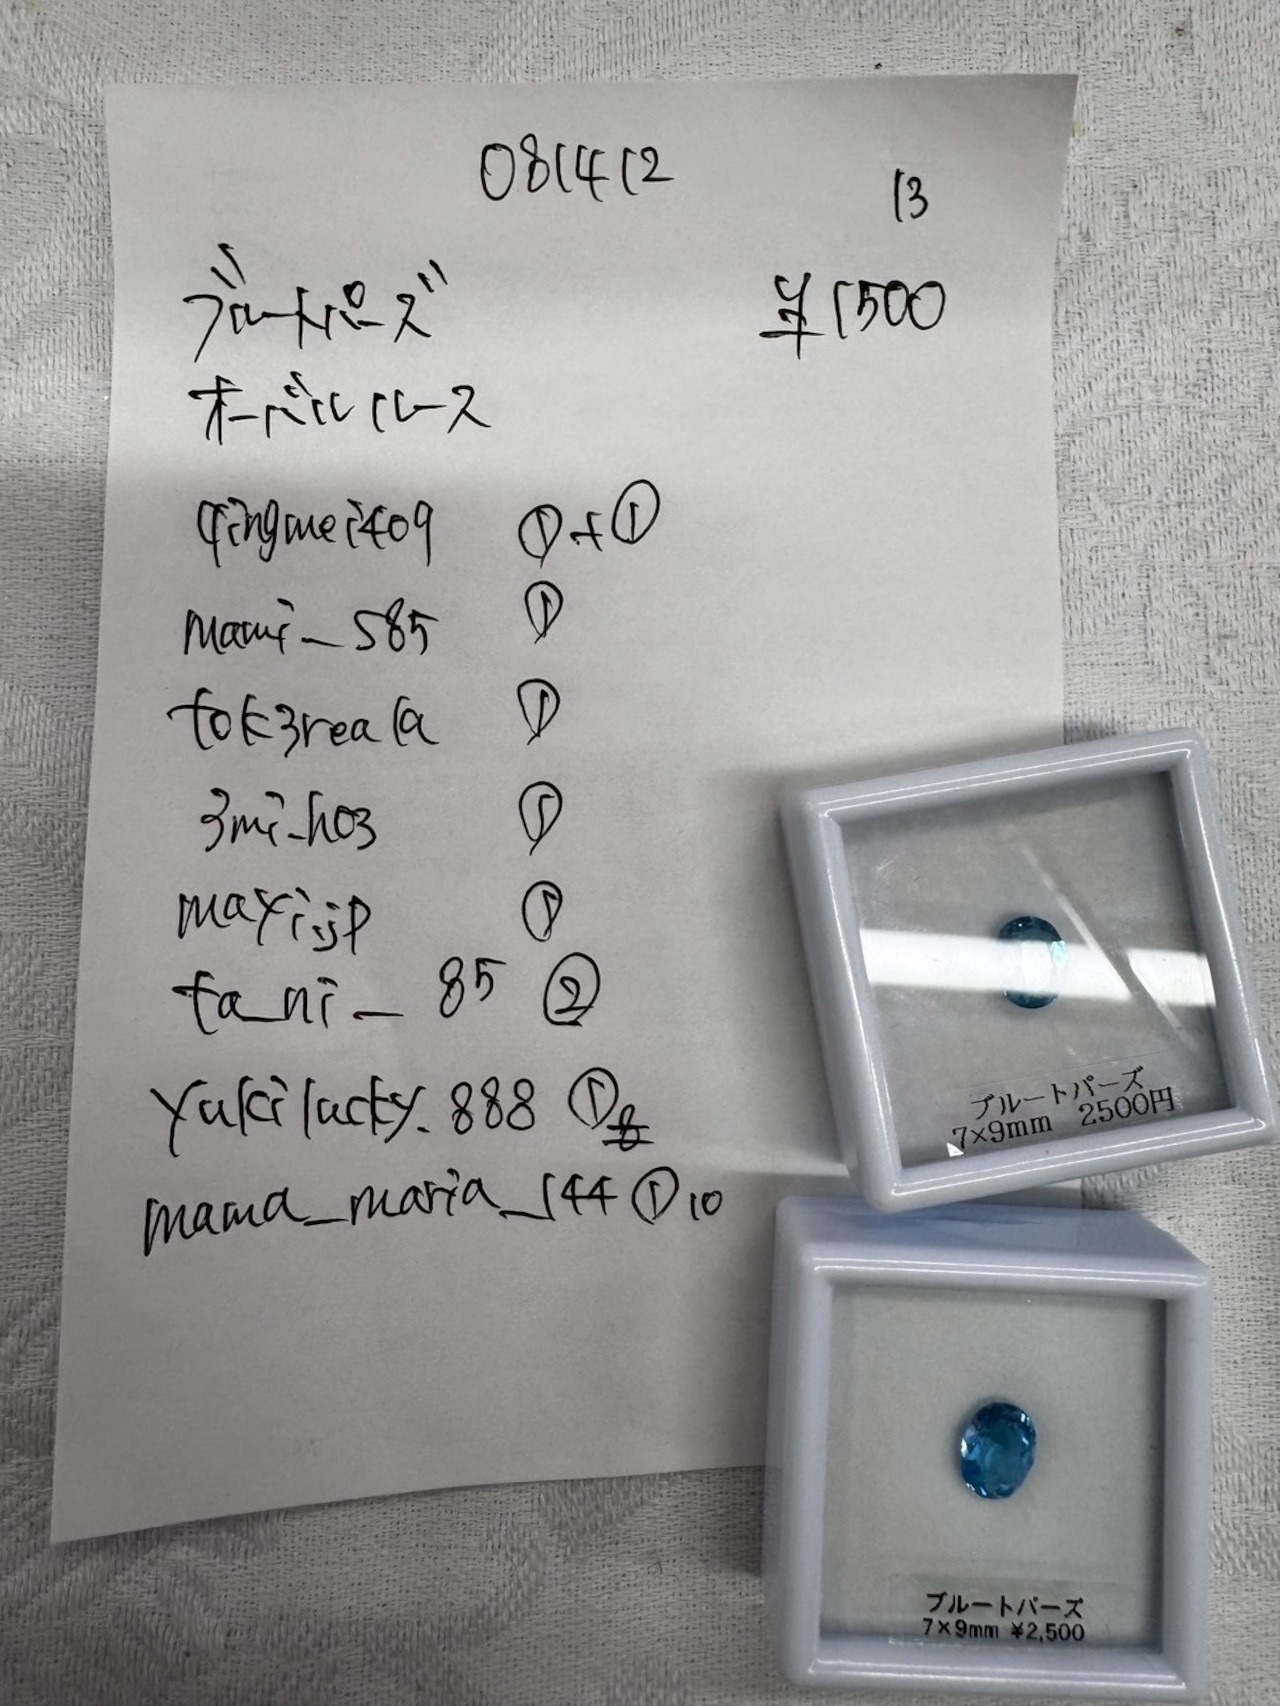 081412
13
ブルートパーズ ¥1500
オーバルルース
qingmei409 ①+①
mami_585 ①
tok3reala ①
3mi_ho3 ①
mayi.jp ①
ta_ni_85 ②
yukilucky.888 ① 8
mama_maria_144 ① 10
ブルートパーズ
7×9mm 2500円
ブルートパーズ
7×9mm ¥2,500